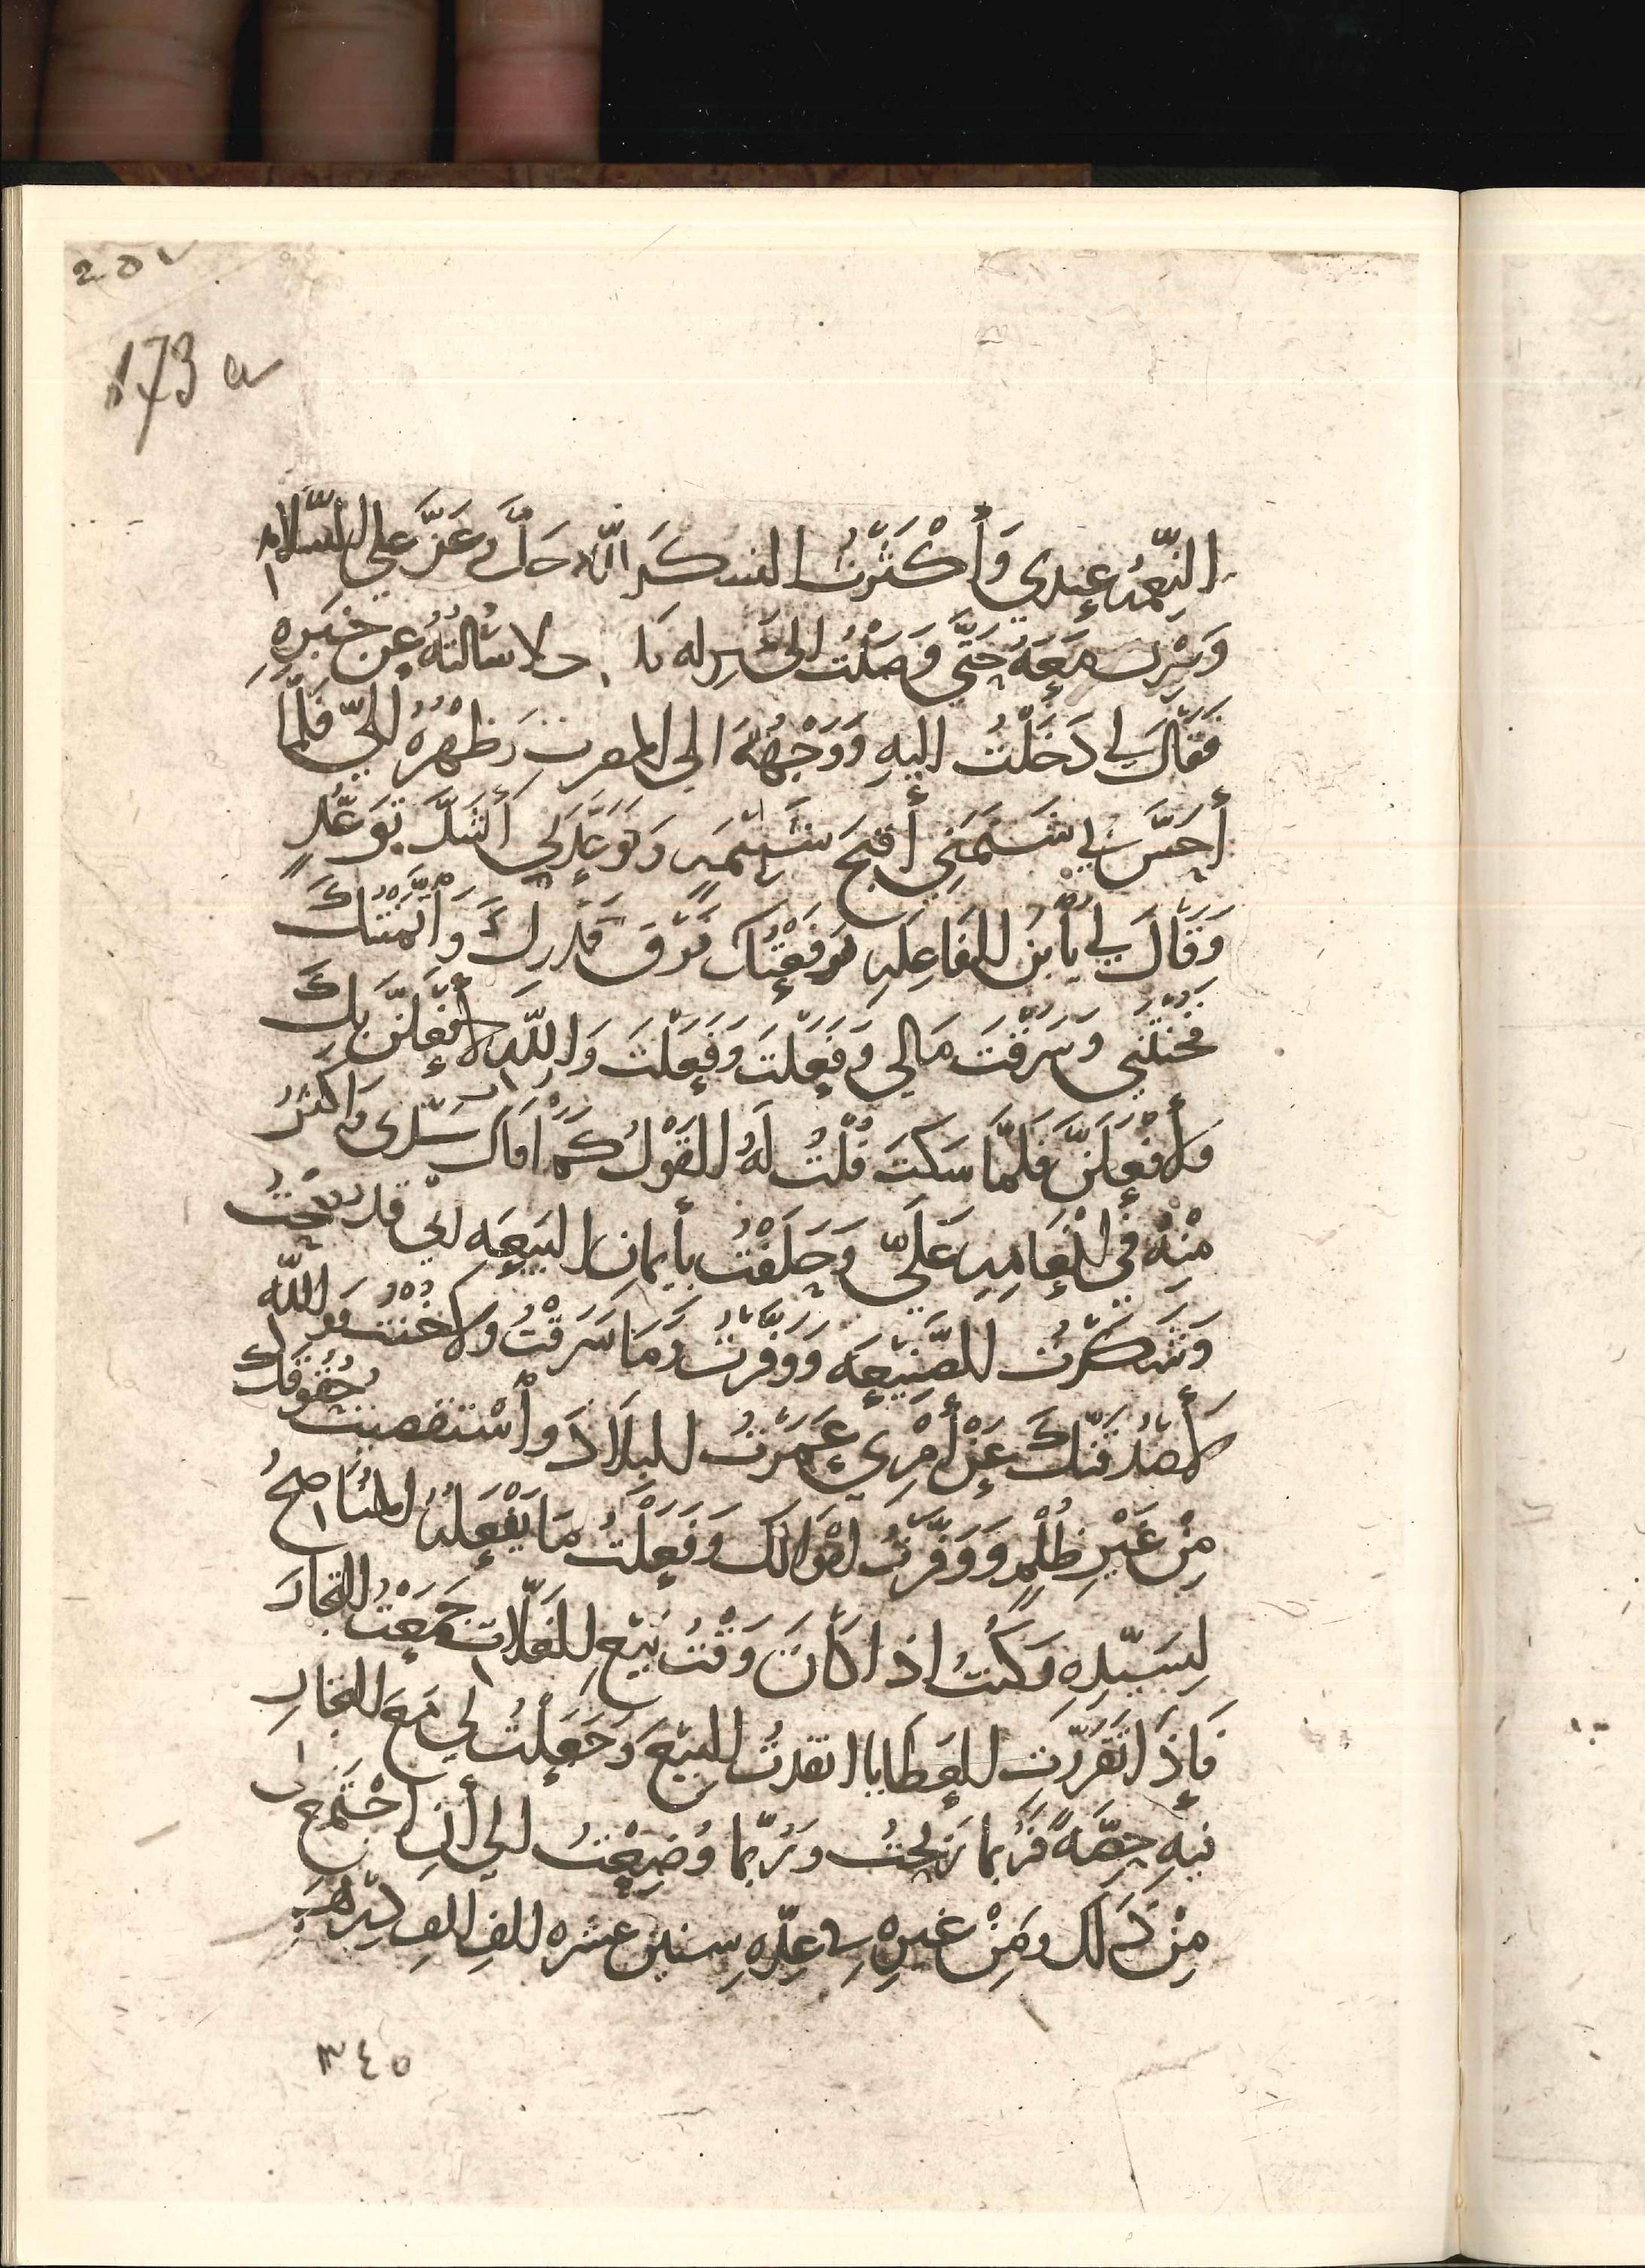 205
173 a
النِّعمَه عِندي وَأَكْثَرْتُ الشكرَ اللّٰه جَلَّ وعَزَّ على السَّلامه
وَسِرْتُ مَعَهُ حَتَّى وَصَلْتُ الى ولا سَالتهُ عن خبَرِهِ
فَقَالَ لي دَخَلْتُ اليهِ وَوَجْهُهُ الى المغرب وَظَهْرُهُ اليَّ فَلمّا
أَحَسَّ بي شَتَمَني أقبحَ شَتِيمَه وَتَوَعَّدَني أَشَدَّ تَوَعُّدٍ
وَقَالَ لي يا بن الفَاعِلَه رَفَعْتُكَ فَوْقَ قَدْرِكَ وَائتَمَنْتُكَ
فخنتَني وَسَرَقْتَ مَالي وَفَعَلتَ وَفَعَلتَ وَاللّهِ لأَفعَلَنَّ بِكَ
وَلأَفْعَلَنَّ فَلَمَّا سَكَتَ قُلْتُ لَهُ القَوْلُ كَمَا قَالَ سَيِّدى وَاكثرُ
مِنْهُ في إنْعَامِه عَلَيَّ وَحَلَفْتُ بأيمان البَيعَه اني قد نصَحْتُ
وَشَكَرْتُ الصَّنِيعَه وَوَفَّرْتُ وَمَا سَرَقْتُ ولا خُنْتُ فواللّه
لأَصْدُقَنَّكَ عَنْ أَمْرِي عَمَرْتُ البِلَادَ وَأسْتَقصيتُ حُقُوقَكَ
مِنْ غَيْرِ ظُلْمٍ وَوَفَّرْتُ امْوَالَكَ وَفَعَلْتُ مَا يَفْعَلُهُ المُنَاصحُ
لِسَيِّدِهِ وَكُنْتُ اذا كَانَ وَقْتُ بَيْعِ الغَلّات جَمَعْتُ التجارَ
فَاِذَا تَقَرَّرَت العَطَايا انفَدتُ البَيْعَ وَجَعَلْتُ لي مَعَ التجارِ
فيهِ حِصَّةً فَرُبما رَبِحْتُ وَرُبَّما وُضِعْتُ الى أَنِ اجْتَمَعَ لي
مِنْ ذَلك ومِنْ غيرِهِ في عِدَّهِ سنين عشره الفِ الفِ دِرْهَم
٣٤٥